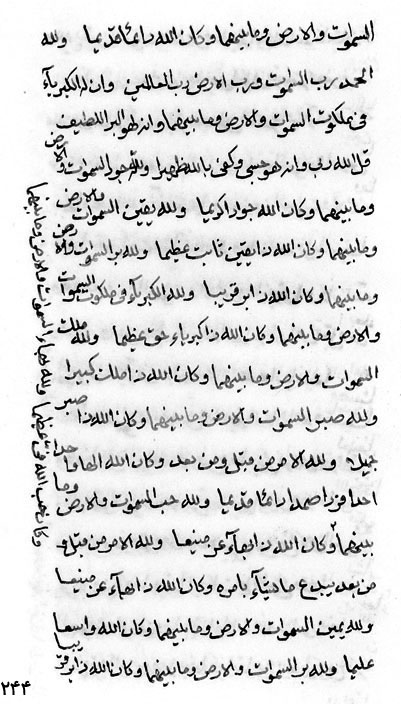 السموات والارض وما بينهما وكان الله دائما قديما ولله
الحمد رب السموات ورب الارض رب العالمين وان له الكبرياء
في ملكوت السموات والارض وما بينهما وانه لهو البر اللطيف
قل الله ربي وانه هو حسبي وكفى بالله ظهيرا ولله جود السموات والارض
وما بينهما وكان الله جوادا كريما ولله يقين السموات والارض
وما بينهما وكان الله ذا يقين ثابت عظيما ولله بر السموات والارض
وما بينهما وكان الله ذا بر قريبا ولله الكبرياء في ملكوت السموات
والارض وما بينهما وكان الله ذا كبرياء حق عظيما ولله ملك
السموات والارض وما بينهما وكان الله ذا ملك كبيرا
ولله صبر السموات والارض وما بينهما وكان الله ذا صبر
جميلا ولله الامر من قبل ومن بعد وكان الله الها واحدا
احدا فردا صمدا دائما قديما ولله حب السموات والارض وما
بينهما وكان الله ذا بهاء عز منيعا ولله الامر من قبل و
من بعد يبدع ما يشاء بامره وكان الله ذا بهاء عز منيعا
ولله يمين السموات والارض وما بينهما وكان الله واسعا
عليما ولله بر السموات والارض وما بينهما وكان الله ذا بر قريبا
وكان بحب الله في عظيما ولله بهاء السموات والارض وما بينهما
۲۴۴